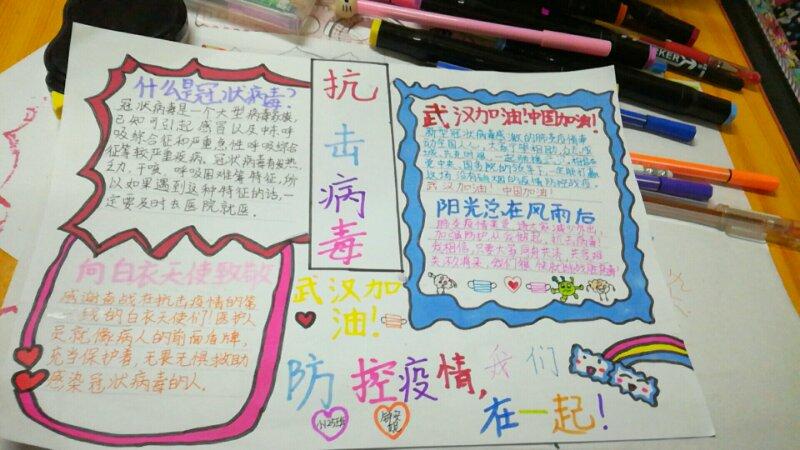 什么是冠状病毒?
冠状病毒是一个大型病毒家族,
已知可引起感冒以及中东呼
吸综合征和严重急性呼吸综合
征等较严重疾病。冠状病毒有发热、
乏力、干咳、呼吸困难等特征,所
以如果遇到这种特征的话,一
定要及时去医院就医。
抗
击
病
毒
武汉加油!中国加油!
新型冠状病毒感染的肺炎疫情牵
动全国人心,
这场没有硝烟的疫情防控战役。
武汉加油!中国加油!
阳光总在风雨后
加强防护
我相信,
向白衣天使致敬
感谢奋战在抗击疫情的第
一线的白衣天使们!医护人
员就像病人的前面盾牌,
充当保护者,无畏无惧救助
感染冠状病毒的人。
武汉加
油!
防控疫情,我们
在一起!